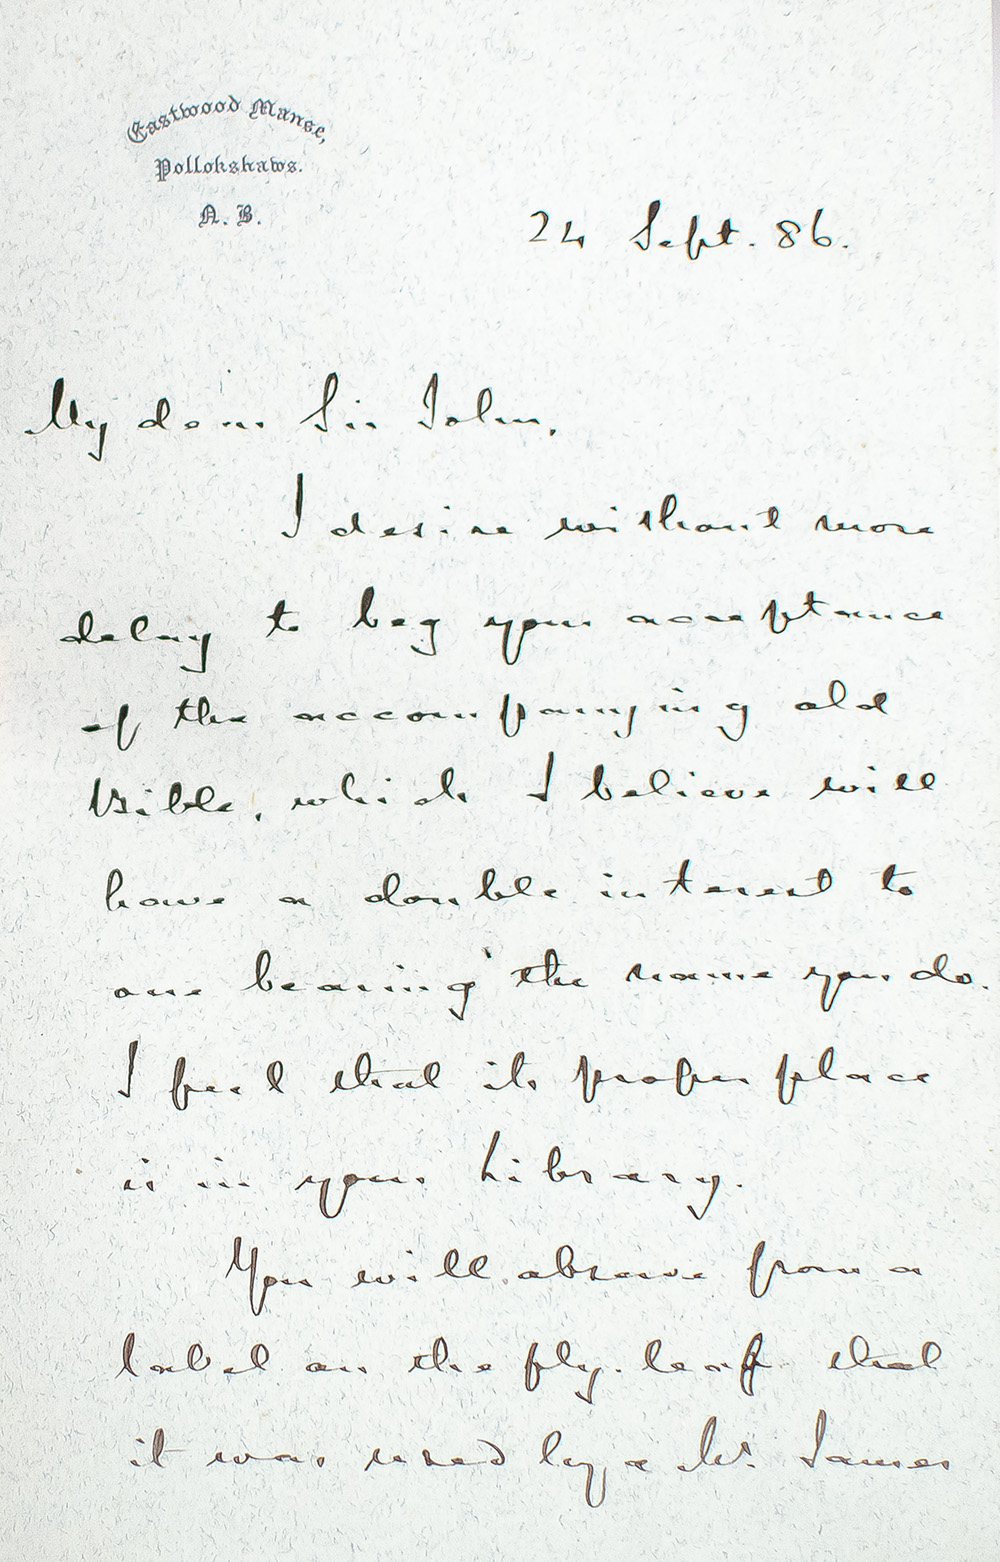 Eastwood Manse,
Pollokshaws.
N. B.
24 Sept. 86.
My dear Sir John,
I desire without more
delay to beg your acceptance
of the accompanying old
Bible, which I believe will
have a double interest to
one bearing the name you do.
I feel that its proper place
is in your Library.
You will observe from a
label on the fly-leaf that
it was used by a Mr. James